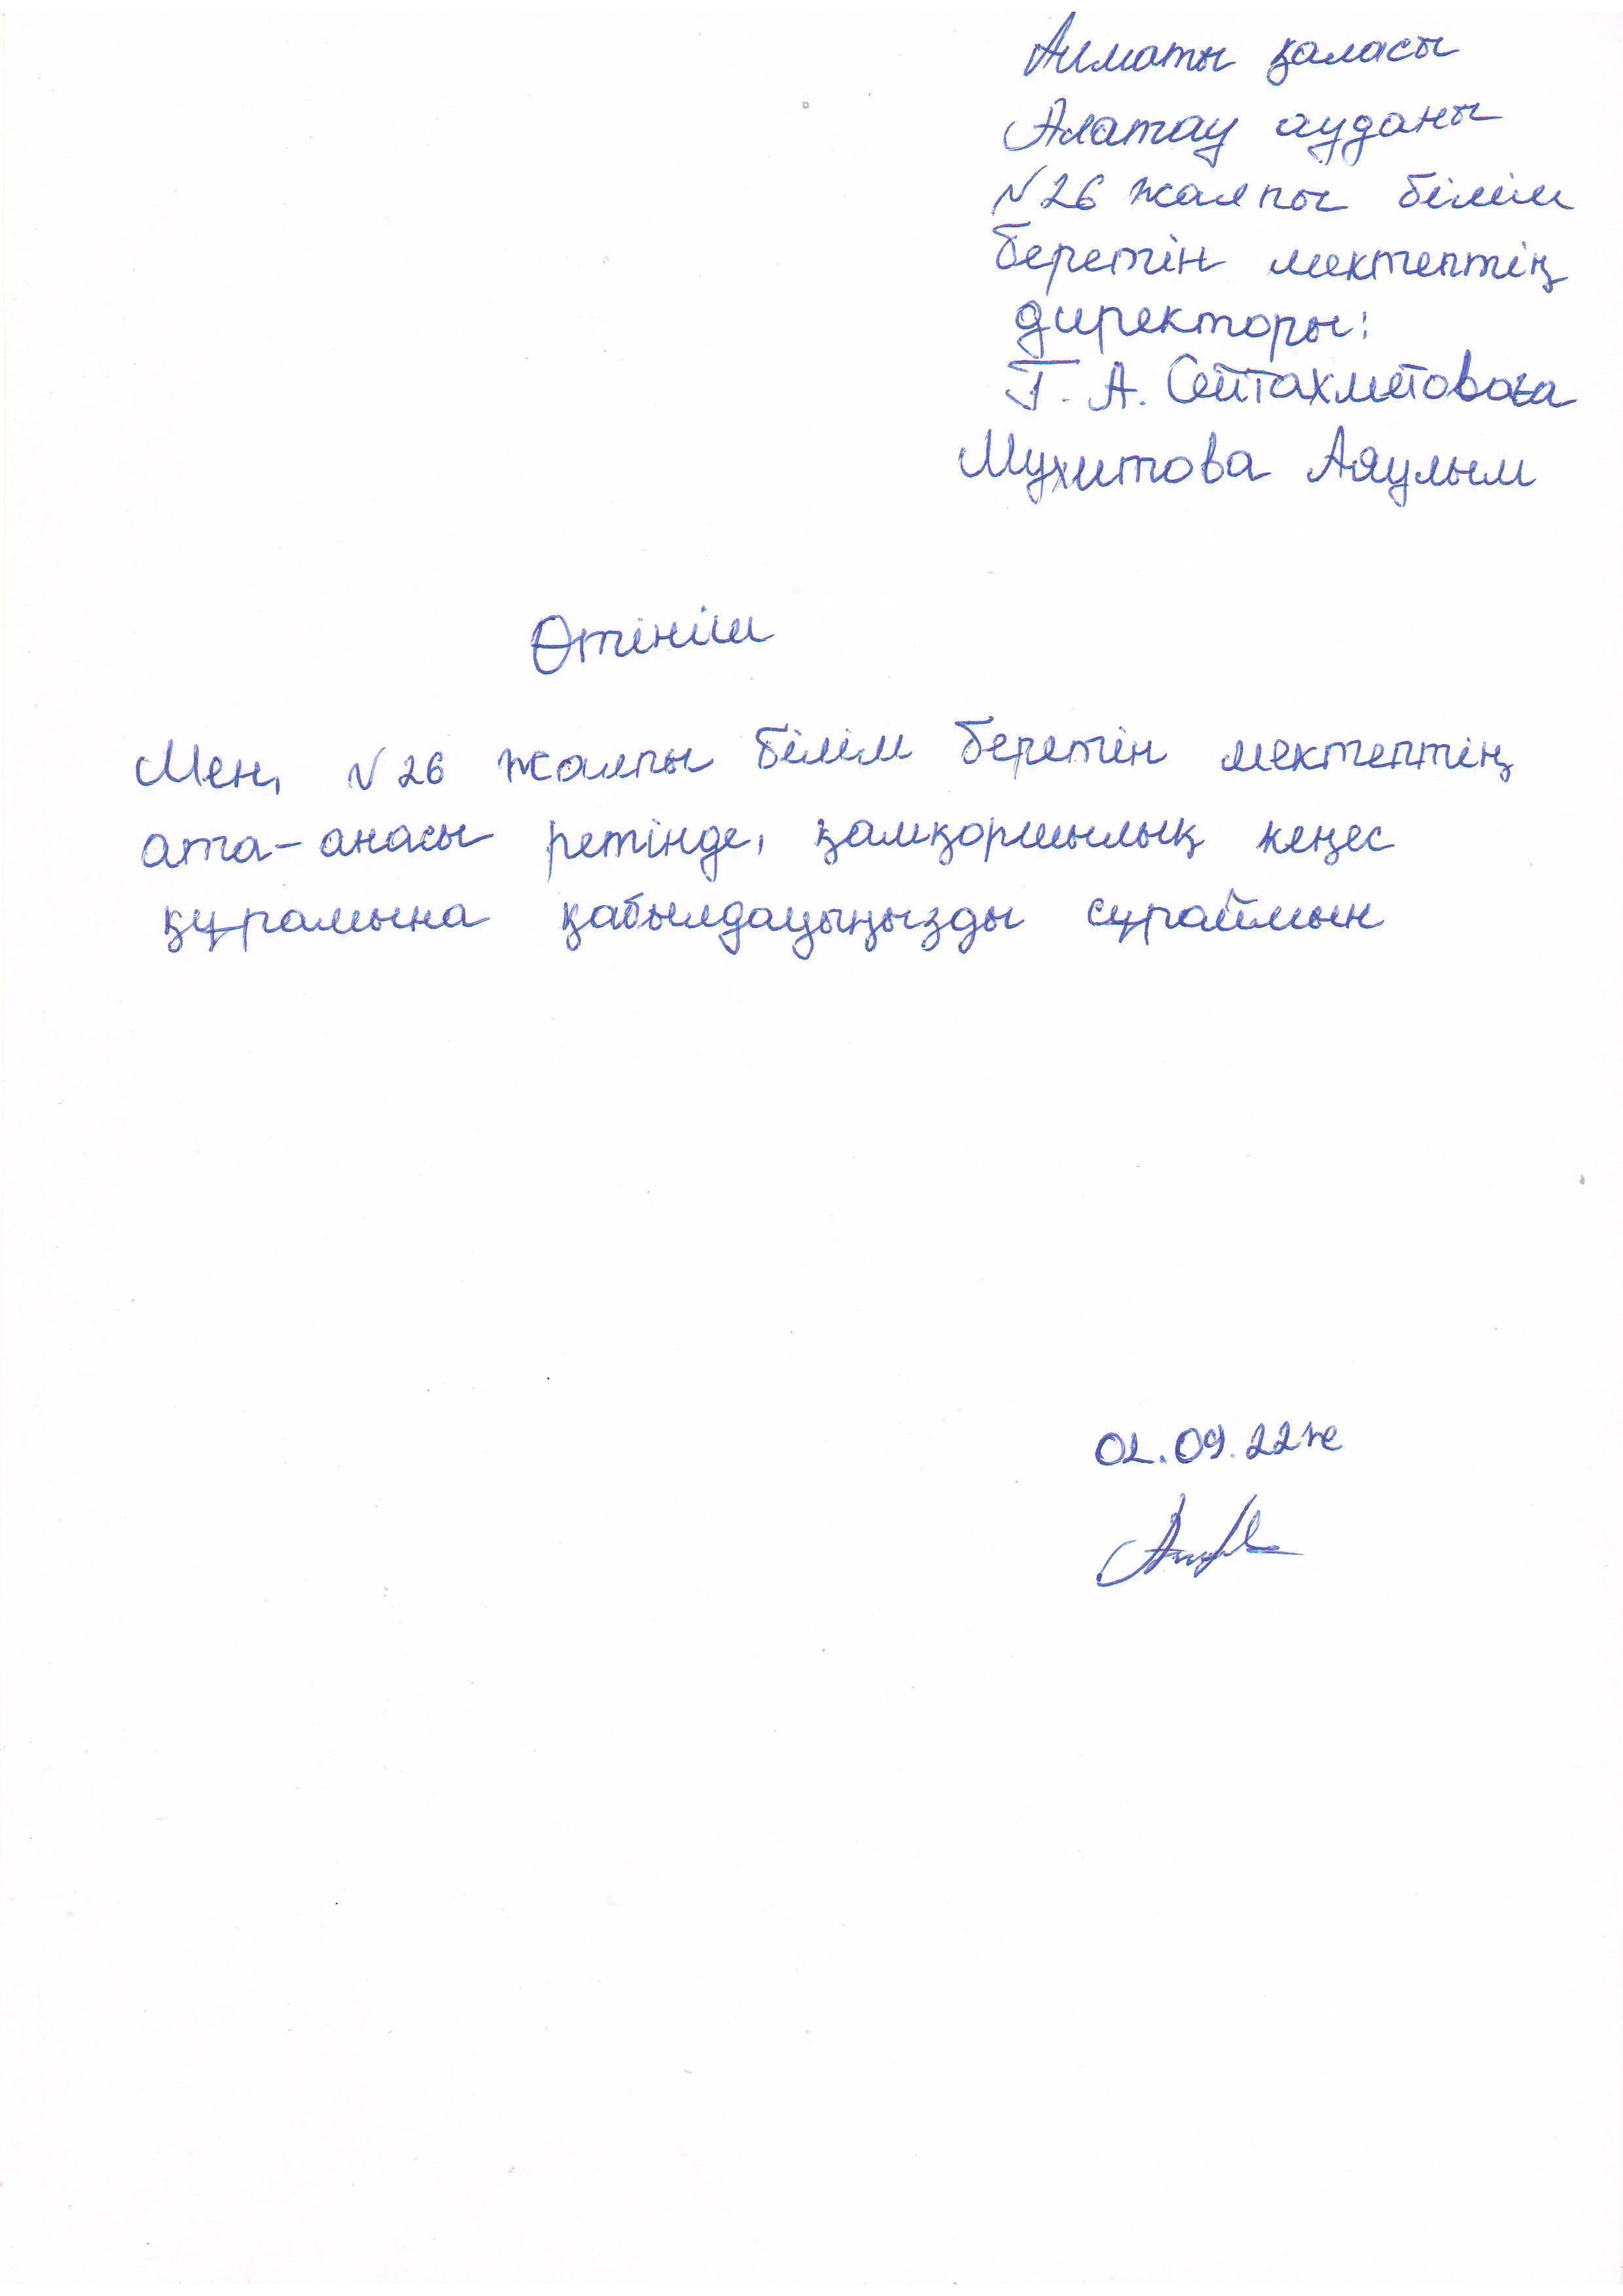 Алматы қаласы
Алатау ауданы
N26 жалпы білім
беретін мектептің
директоры:
Г. А. Сейтахметоваға
Мухитова Аяулым
Өтініш
Мен, N26 жалпы білім беретін мектептің
ата-анасы ретінде, қамқоршылық кеңес
құрамына қабылдауыңызды сұраймын
02.09.22ж